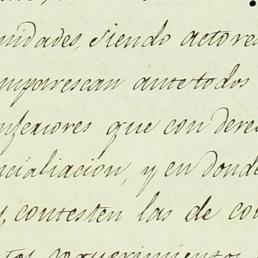 nidades, siendo actores
mparescan ante todos
nferiores que con dere
ncialiacion, y en donde
, contesten las de co
tos requerimientos